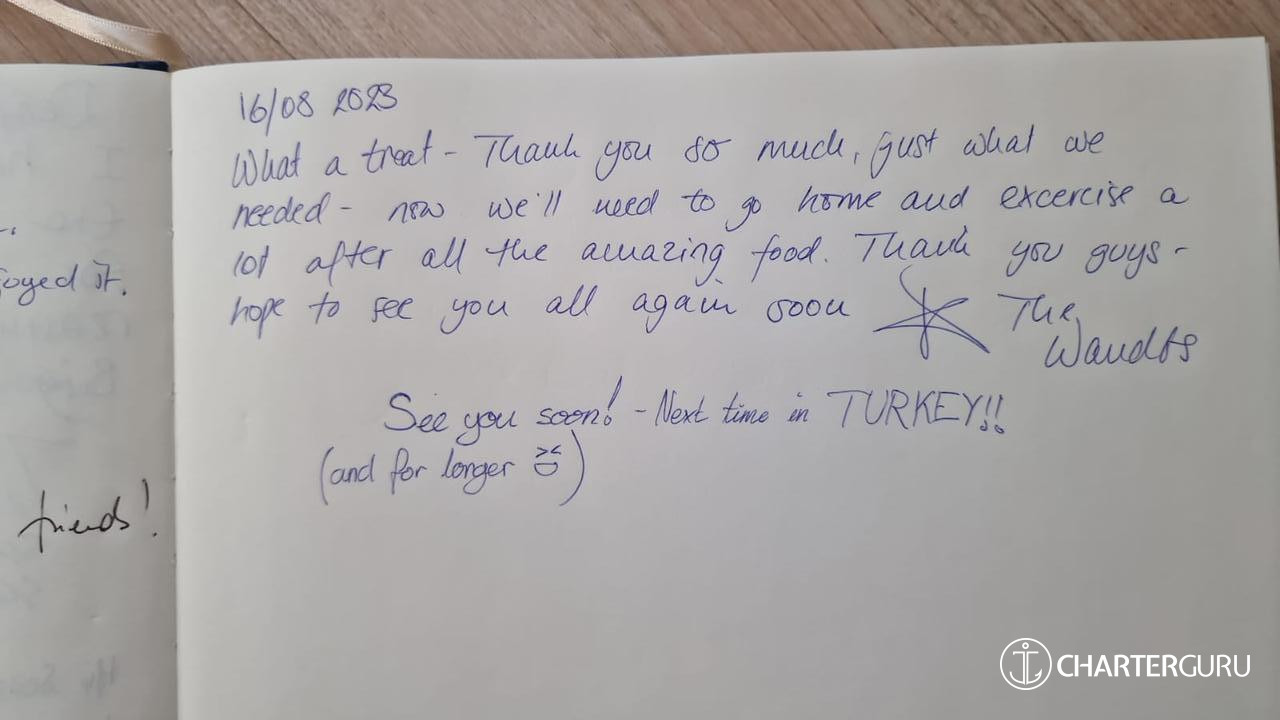 16/08 2023
What a treat - Thank you so much, just what we
needed - now we'll need to go home and excercise a
lot after all the amazing food. Thank you guys -
hope to see you all again soon
The
See you soon! - Next time in TURKEY!!
(and for longer )
joyed it.
friends!
CHARTERGURU